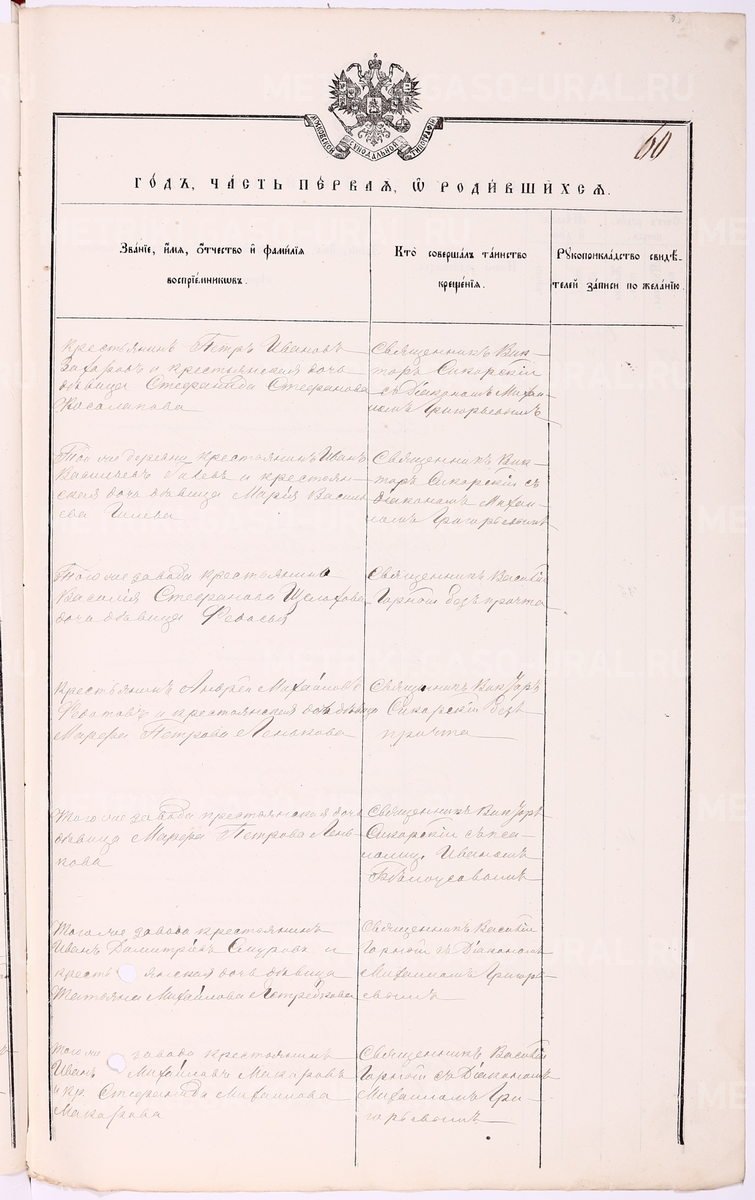 МОСКОВСКОЙ СѴНОДАЛЬНОЙ ТИПОГРАФІИ
60
ГО́ДЪ, ЧА́СТЬ ПЕ́РВАЯ, Ѿ РОДИ́ВШИХСЯ.
Зва́нїе, и́мѧ, о́тчество и҆ фами́лїѧ
воспрїе́мникѡвъ.
Кто̀ соверша́лъ та́инство
креще́нїѧ.
Рꙋкоприкла́дство свидѣ́-
телей за́писи по жела́нїю.
крестьянинъ Петръ Ивановъ
и крестьянская дочь
дѣвица Стефанида Стефанова
Косалапова
Священникъ Вик-
торъ Сикорскій
съ Діакономъ Михаи-
ломъ Григорьевымъ
Той же деревни крестьянинъ Иванъ
Васильевъ и крестьян-
ская дочь дѣвица Марія Василь
ева
Священникъ Вик-
торъ Сикорскій съ
діакономъ Михаи-
ломъ Григорьевымъ
Того же завода крестьянина
Василія Стефанова
дочь дѣвица Ѳедосья
Священникъ Василій
Горный безъ причта
Крестьянинъ Андрей Михайловъ
и крестьянская дочь дѣвица
Марѳа Петрова Пенькова
Священникъ Викторъ
Сикорскій безъ
причта
Того же завода крестьянская дочь
дѣвица Марѳа Петрова Пень-
кова
Священникъ Викторъ
Сикорскій съ пса-
ломщ. Иваномъ
Бѣлоусовымъ
Того же завода крестьянинъ
Иванъ Димитріевъ и
крестьянская дочь дѣвица
Татьяна Михайлова Ястребкова
Священникъ Василій
Горный съ Діакономъ
Михаиломъ Григорь-
евымъ
Того же завода крестьянинъ
Иванъ Михайловъ Макаровъ
и кр. Стефанида Михайлова
Макарова
Священникъ Василій
Горный съ Діакономъ
Михаиломъ Гри-
горьевымъ